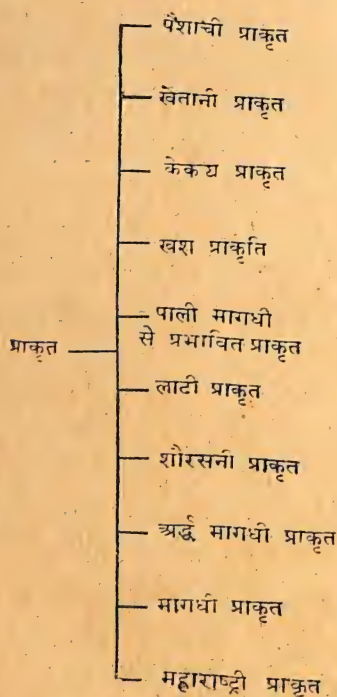 पैशाची प्राकृत
खेतानी प्राकृत
केकय प्राकृत
खश प्राकृति
पाली मागधी
से प्रभावित प्राकृत
प्राकृत
लाटी प्राकृत
शौरसनी प्राकृत
अर्द्ध मागधी प्राकृत
मागधी प्राकृत
महाराष्ट्री प्राकृत